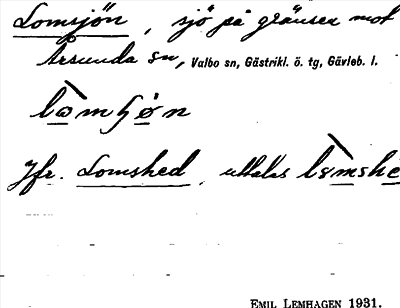 Lomsjön, sjö på gränsen mot
Årsunda sn, Valbo sn, Gästrikl. ö. tg, Gävleb. l.
lòmʃøn
Jfr. Lomshed, uttalas lòmshe
EMIL LEMHAGEN 1931.